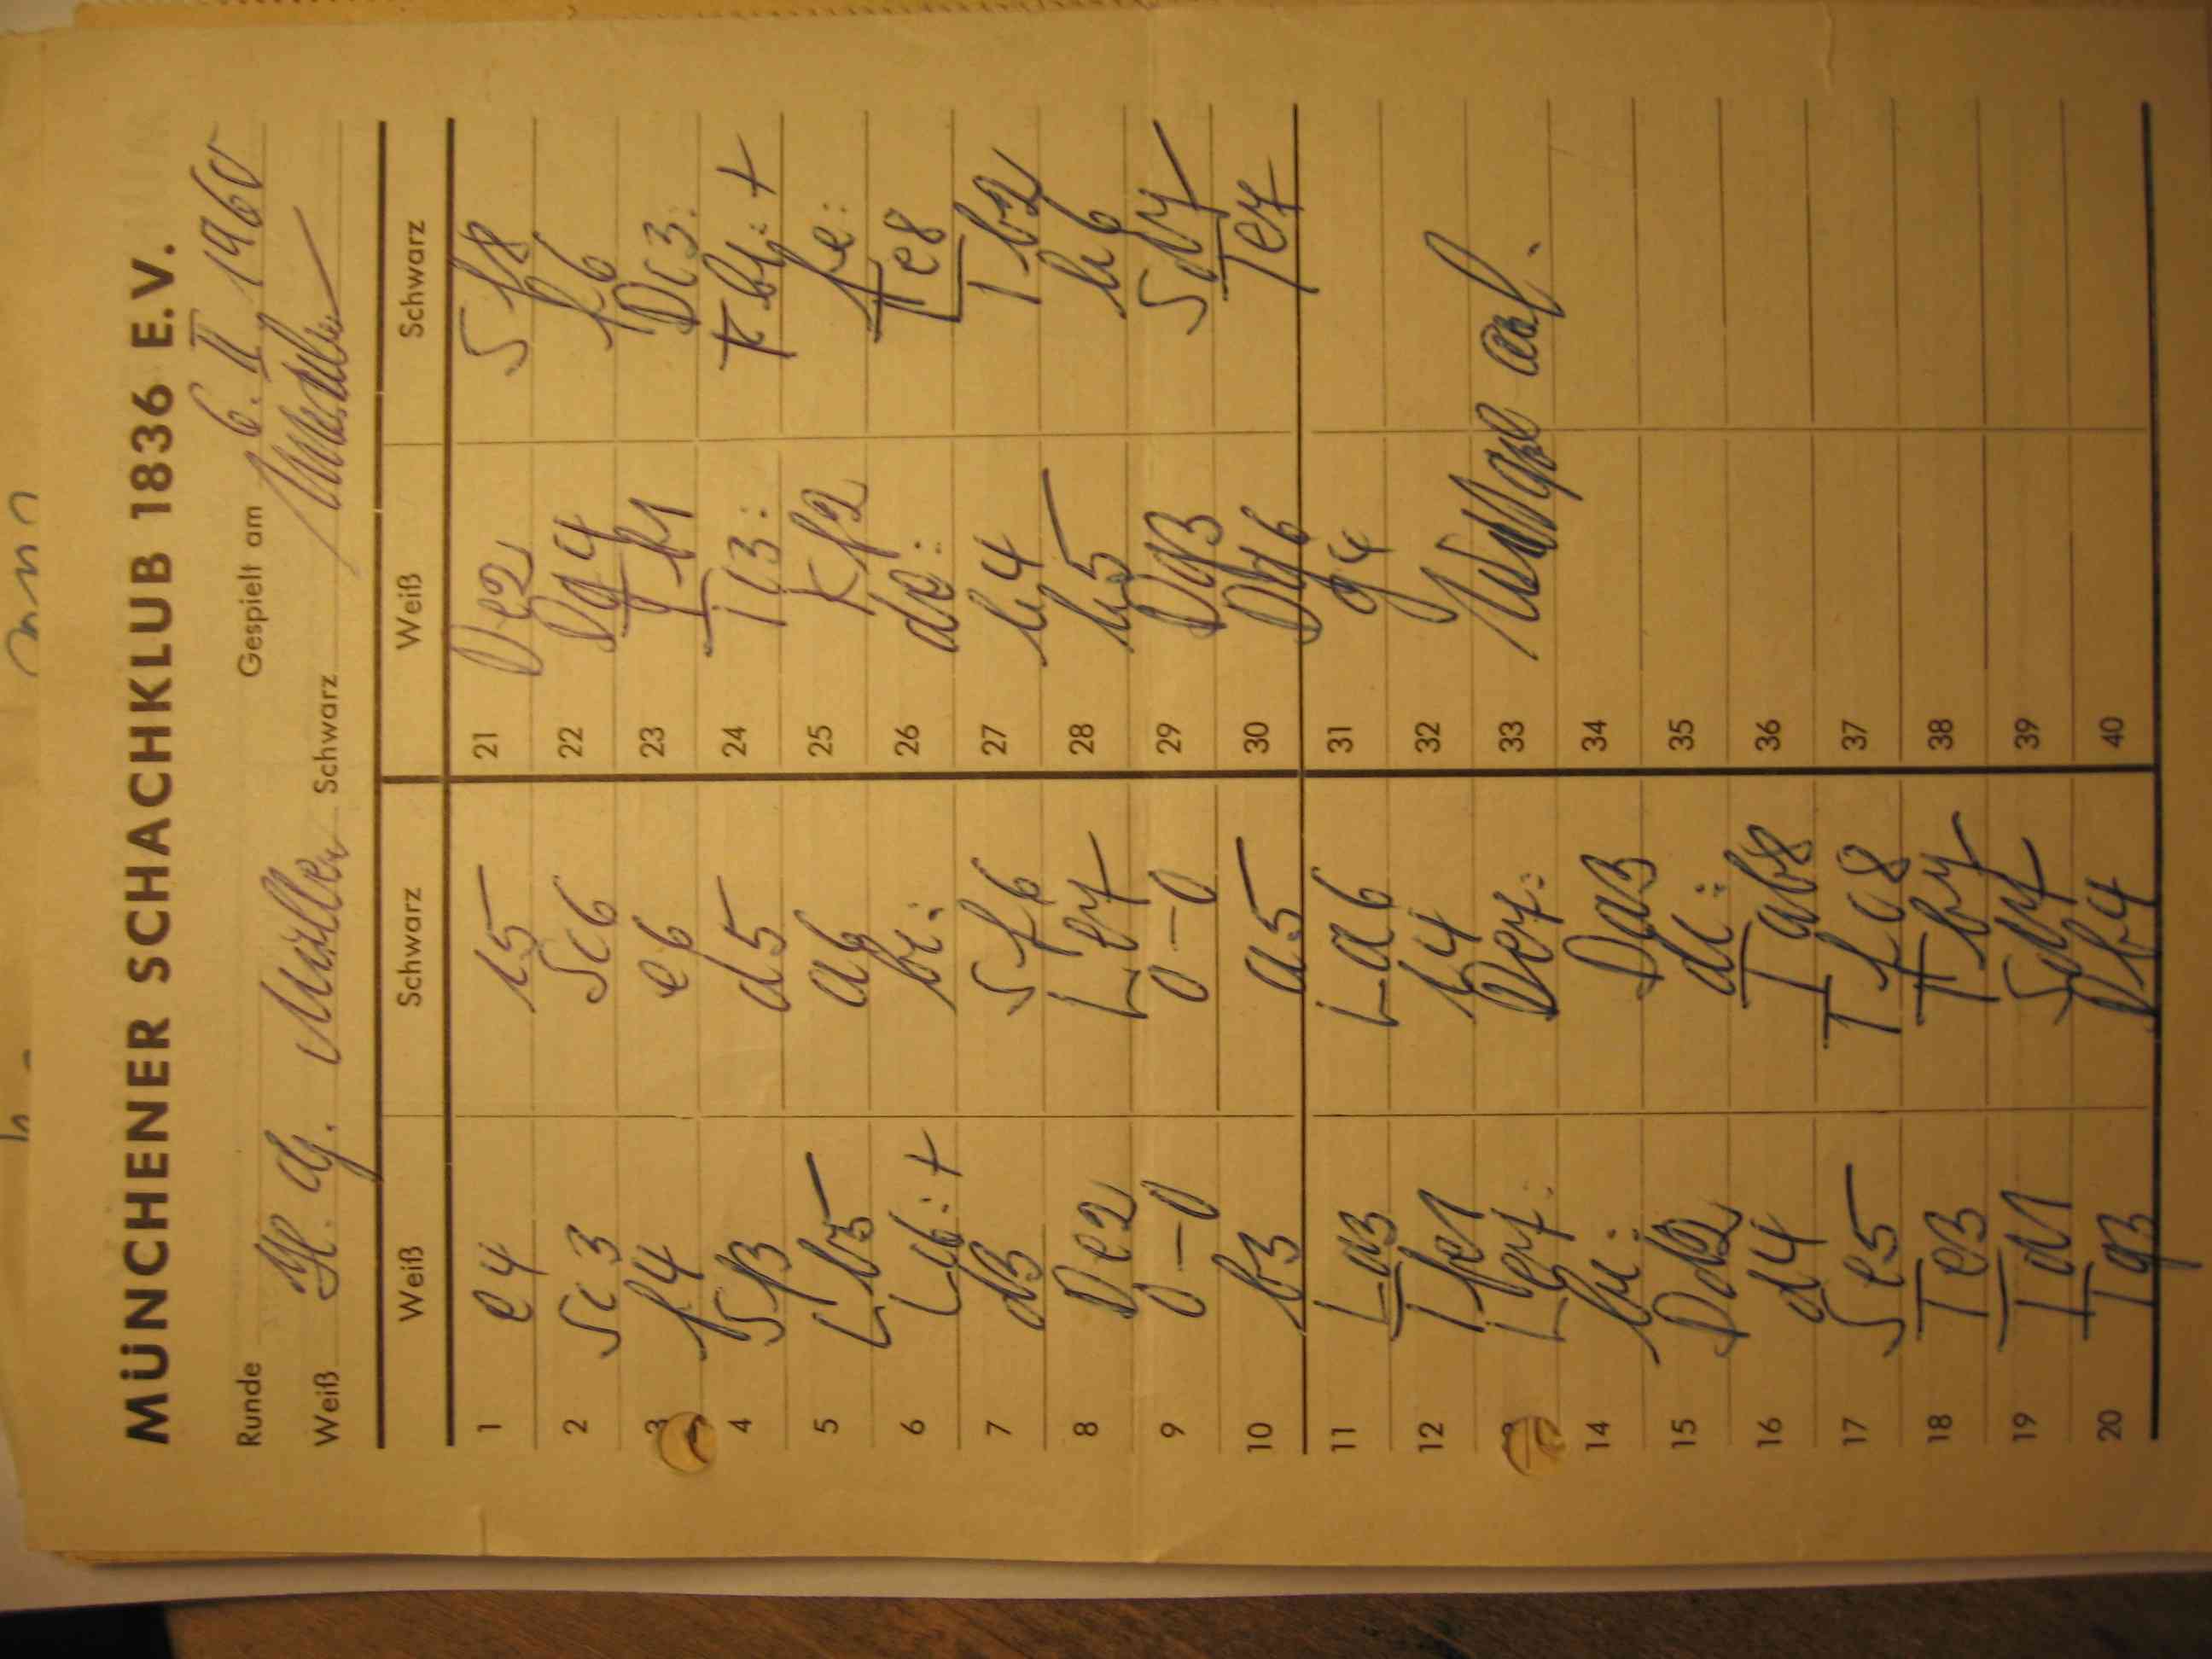 MÜNCHENER SCHACHKLUB 1836 E.V.
Runde Gespielt am 6. II. 1960
Weiß Müller Schwarz
Weiß Schwarz Weiß Schwarz
1 e4 c5 21 De2 Sf8
2 Sc3 Sc6 22 Dg4 f6
3 f4 e6 23 Tf1 Dc3:
4 Sf3 d5 24 Tc3: Tb1:+
5 Lb5 a6 25 Kf2 fe:
6 Lc6:+ bc: 26 de: Te8
7 d3 Sf6 27 h4 Tb2
8 De2 Le7 28 h5 h6
9 0-0 0-0 29 Dg3 Sd7
10 b3 a5 30 Dg6 Te7
11 La3 La6 31 g4
12 Tfe1 c4 32
13 Le7: De7: 33
14 bc: Da3 34
15 Dd2 dc: 35
16 d4 Tab8 36
17 Se5 Tfc8 37
18 Te3 Tb7 38
19 Td1 Sd7 39
20 Tg3 Db4 40